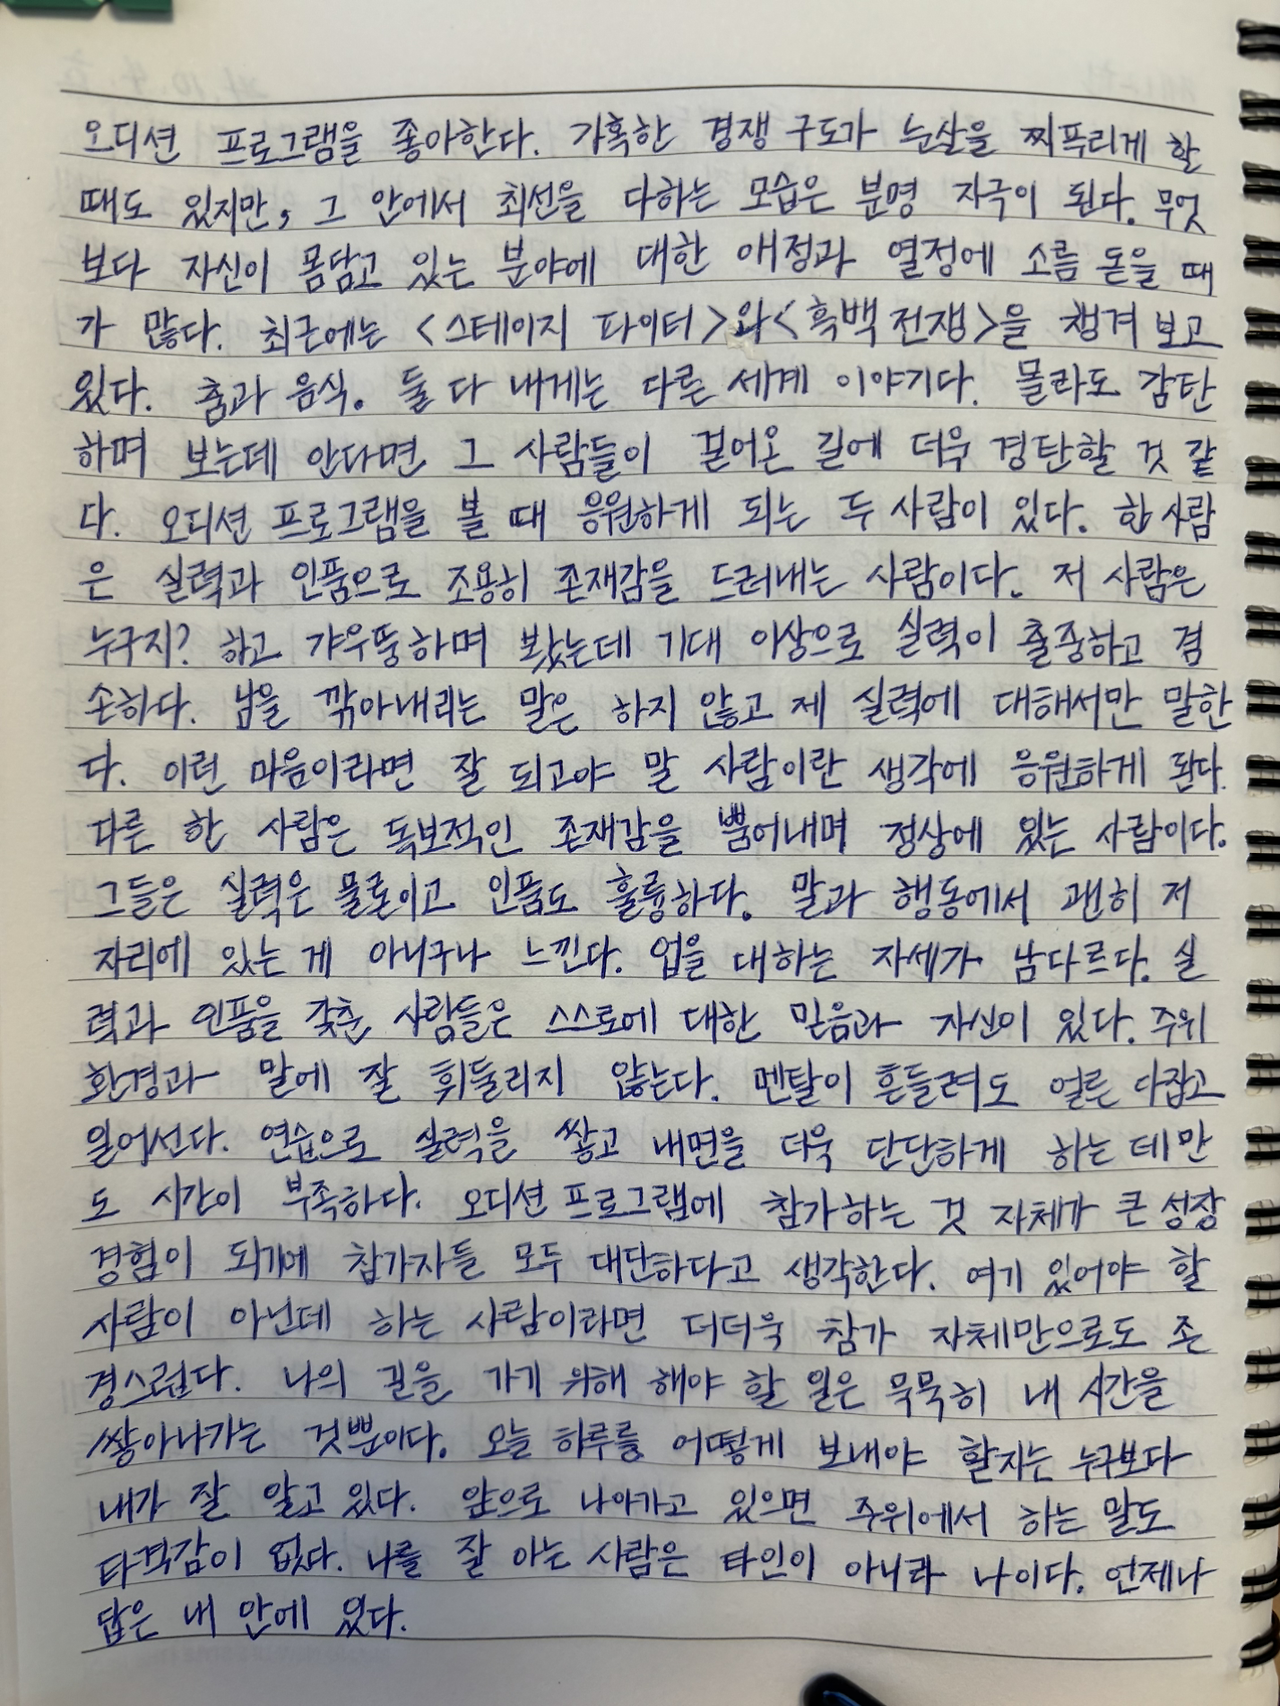 오디션 프로그램을 좋아한다. 가혹한 경쟁 구도가 눈살을 찌푸리게 할
때도 있지만, 그 안에서 최선을 다하는 모습은 분명 자극이 된다. 무엇
보다 자신이 몸담고 있는 분야에 대한 애정과 열정에 소름 돋을 때
가 많다. 최근에는 <스테이지 파이터>와 <흑백 전쟁>을 챙겨 보고
있다. 춤과 음식. 둘 다 내게는 다른 세계 이야기다. 몰라도 감탄
하며 보는데 안다면 그 사람들이 걸어온 길에 더욱 경탄할 것 같
다. 오디션 프로그램을 볼 때 응원하게 되는 두 사람이 있다. 한 사람
은 실력과 인품으로 조용히 존재감을 드러내는 사람이다. 저 사람은
누구지? 하고 갸우뚱하며 봤는데 기대 이상으로 실력이 출중하고 겸
손하다. 남을 깎아내리는 말은 하지 않고 제 실력에 대해서만 말한
다. 이런 마음이라면 잘 되고야 말 사람이란 생각에 응원하게 된다.
다른 한 사람은 독보적인 존재감을 뿜어내며 정상에 있는 사람이다.
그들은 실력은 물론이고 인품도 훌륭하다. 말과 행동에서 괜히 저
자리에 있는 게 아니구나 느낀다. 업을 대하는 자세가 남다르다. 실
력과 인품을 갖춘 사람들은 스스로에 대한 믿음과 자신이 있다. 주위
환경과 말에 잘 휘둘리지 않는다. 멘탈이 흔들려도 얼른 다잡고
일어선다. 연습으로 실력을 쌓고 내면을 더욱 단단하게 하는 데만
도 시간이 부족하다. 오디션 프로그램에 참가하는 것 자체가 큰 성장
경험이 되기에 참가자들 모두 대단하다고 생각한다. 여기 있어야 할
사람이 아닌데 하는 사람이라면 더더욱 참가 자체만으로도 존
경스럽다. 나의 길을 가기 위해 해야 할 일은 묵묵히 내 시간을
쌓아나가는 것뿐이다. 오늘 하루를 어떻게 보내야 할지는 누구보다
내가 잘 알고 있다. 앞으로 나아가고 있으면 주위에서 하는 말도
타격감이 없다. 나를 잘 아는 사람은 타인이 아니라 나이다. 언제나
답은 내 안에 있다.